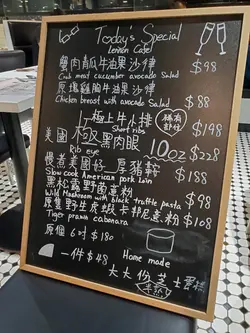 Today's Special
Lemon Cafe
蟹肉青瓜牛油果沙律 $98
Crab meat cucumber avocado Salad
原塊雞胸牛油果沙律
Chicken breast with avocado Salad $88
極上牛小排 $198
Short ribs
美國極黑肉眼 10oz $228
Rib eye
慢煮美國 厚豬鞍 $188
Slow cook American pork loin
黑松露野菌意粉 $98
Wild Mushroom with black truffle pasta
原隻野生虎蝦卡邦尼意粉 $108
Tiger prawn cabonara
原個 6吋 $180
Home made
一件 $48
大大份芝士蛋糕